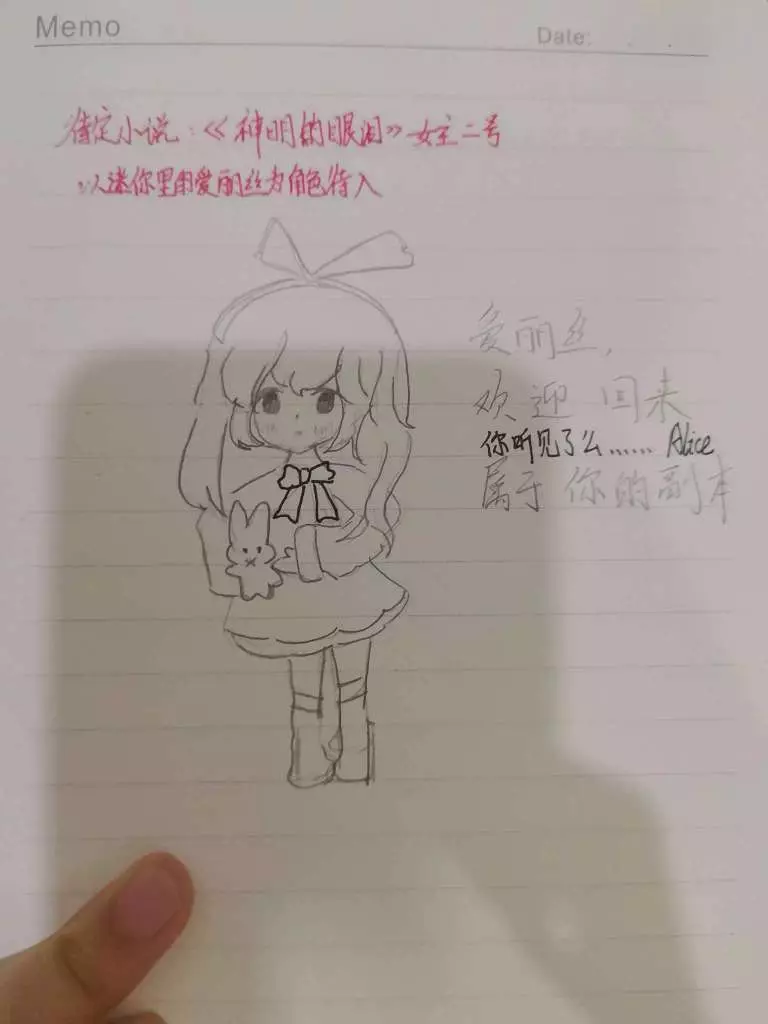 Memo
Date:
待定小说:《神明的眼泪》女主二号
以迷你里的爱丽丝为角色待入
爱丽丝,
欢迎回来
你听见了么…… Alice
属于你的副本